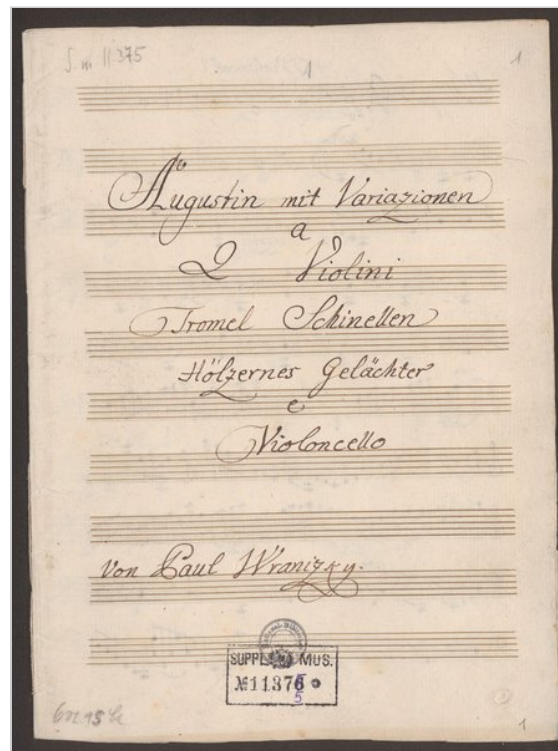 S. m 11375
1
1
Augustin mit Variazionen
a
2 Violini
Tromel Schinellen
Hölzernes Gelächter
e
Violoncello
Von Paul Wranizky.
SUPPL MUS.
№11376
5
1